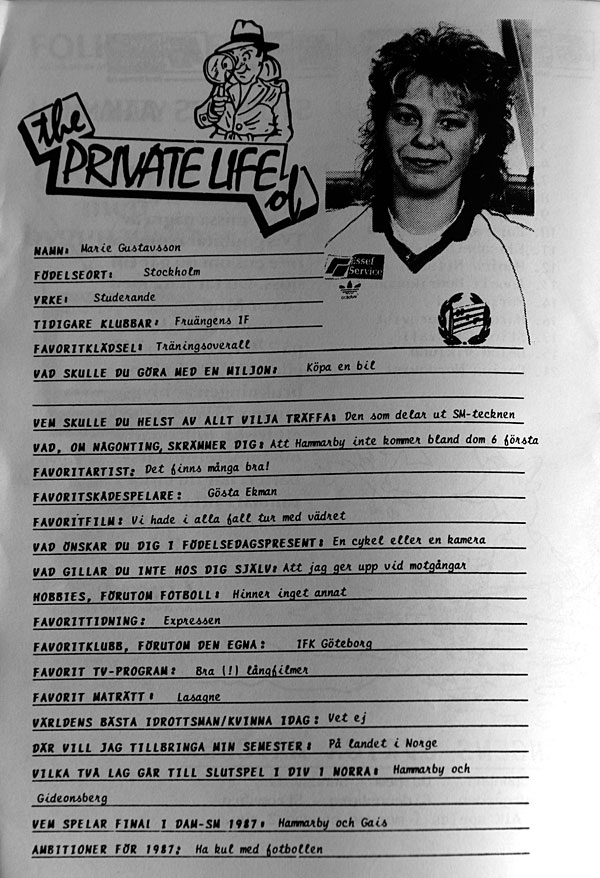 the
PRIVATE LIFE
of
NAMN: Marie Gustavsson
FÖDELSEORT: Stockholm
YRKE: Studerande
TIDIGARE KLUBBAR: Fruängens IF
FAVORITKLÄDSEL: Träningsoverall
VAD SKULLE DU GÖRA MED EN MILJON: Köpa en bil
VEM SKULLE DU HELST AV ALLT VILJA TRÄFFA: Den som delar ut SM-tecknen
VAD, OM NÅGONTING, SKRÄMMER DIG: Att Hammarby inte kommer bland dom 6 första
FAVORITARTIST: Det finns många bra!
FAVORITSKÅDESPELARE: Gösta Ekman
FAVORITFILM: Vi hade i alla fall tur med vädret
VAD ÖNSKAR DU DIG I FÖDELSEDAGSPRESENT: En cykel eller en kamera
VAD GILLAR DU INTE HOS DIG SJÄLV: Att jag ger upp vid motgångar
HOBBIES, FÖRUTOM FOTBOLL: Hinner inget annat
FAVORITTIDNING: Expressen
FAVORITKLUBB, FÖRUTOM DEN EGNA: IFK Göteborg
FAVORIT TV-PROGRAM: Bra (!) långfilmer
FAVORIT MATRÄTT: Lasagne
VÄRLDENS BÄSTA IDROTTSMAN/KVINNA IDAG: Vet ej
DÄR VILL JAG TILLBRINGA MIN SEMESTER: På landet i Norge
VILKA TVÅ LAG GÅR TILL SLUTSPEL I DIV 1 NORRA: Hammarby och
Gideonsberg
VEM SPELAR FINAL I DAM-SM 1987: Hammarby och Gais
AMBITIONER FÖR 1987: Ha kul med fotbollen
Essef
Service
adidas